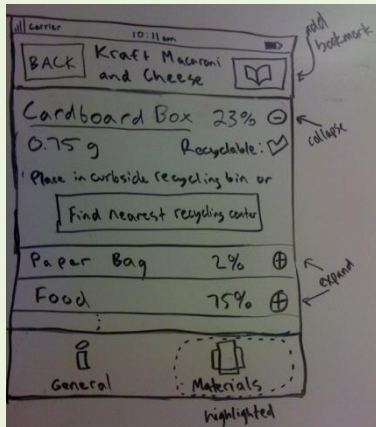 Carrier 10:11 am
BACK Kraft Macaroni
and Cheese
add
bookmark
Cardboard Box 23%
collapse
0.75 g Recyclable:
Place in curbside recycling bin or
Find nearest recycling center
Paper Bag 2%
expand
Food 75%
General Materials
highlighted